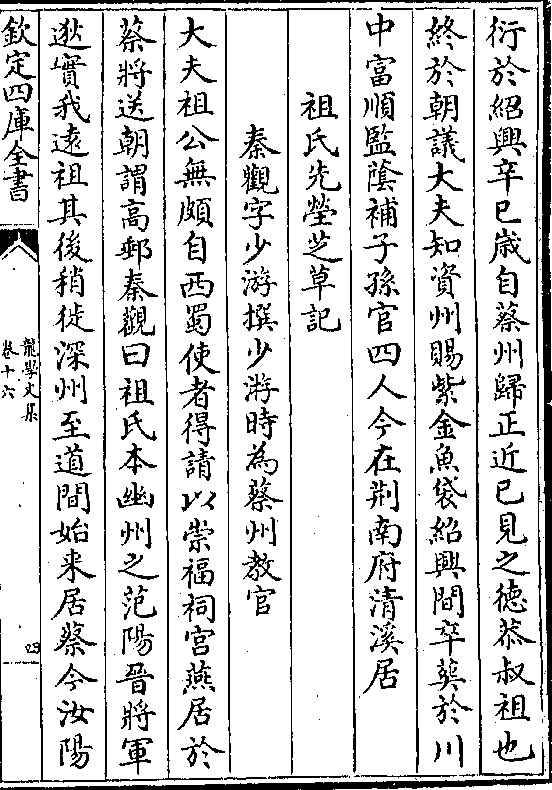 衍於紹興辛巳歳自蔡州歸正近已見之德恭叔祖也
終於朝議大夫知資州賜紫金魚袋紹興間卒葬於川
中富順監蔭補子孫官四人今在荆南府清溪居
祖氏先塋芝草記
秦觀字少游撰少游時為蔡州教官
大夫祖公無頗自西蜀使者得請以崇福祠宫燕居於
蔡將送朝謂高郵秦觀曰祖氏本幽州之范陽晉將軍
逖實我遠祖其後稍徙深州至道間始来居蔡今汝陽
欽定四庫全書
龍學文集
卷十六